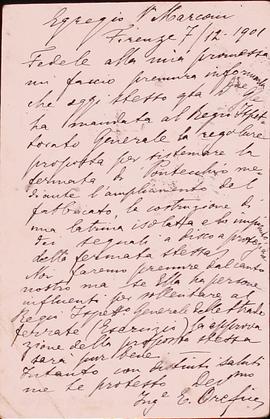 Egregio Sr Marconi
Firenze 7/12-1901
Fedele alla mia promessa
mi faccio premura informarla
che oggi stesso
ha mandata al Regio Ispet
torato Generale la regolare
proposta per sistemare la
fermata di Pontecchio me
diante l'ampliamento del
fabbricato, la costruzione di
una latrina isolata e
dei segnali a disco a protezione
della fermata stessa
Noi faremo premure dal canto
nostro ma se Ella ha persone
influenti per sollecitare al
Regio Ispett Generale delle Strade
ferrate (Esercizio) la approva
zione della proposta stessa
sarà pur bene
Intanto con distinti saluti
me le protesto Devmo
Inge E. Orefice